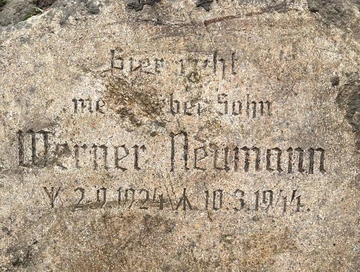 Hier ruht
mein lieber Sohn
Werner Neumann
ᛉ 2.9.1924 ᛣ 10.3.1944.